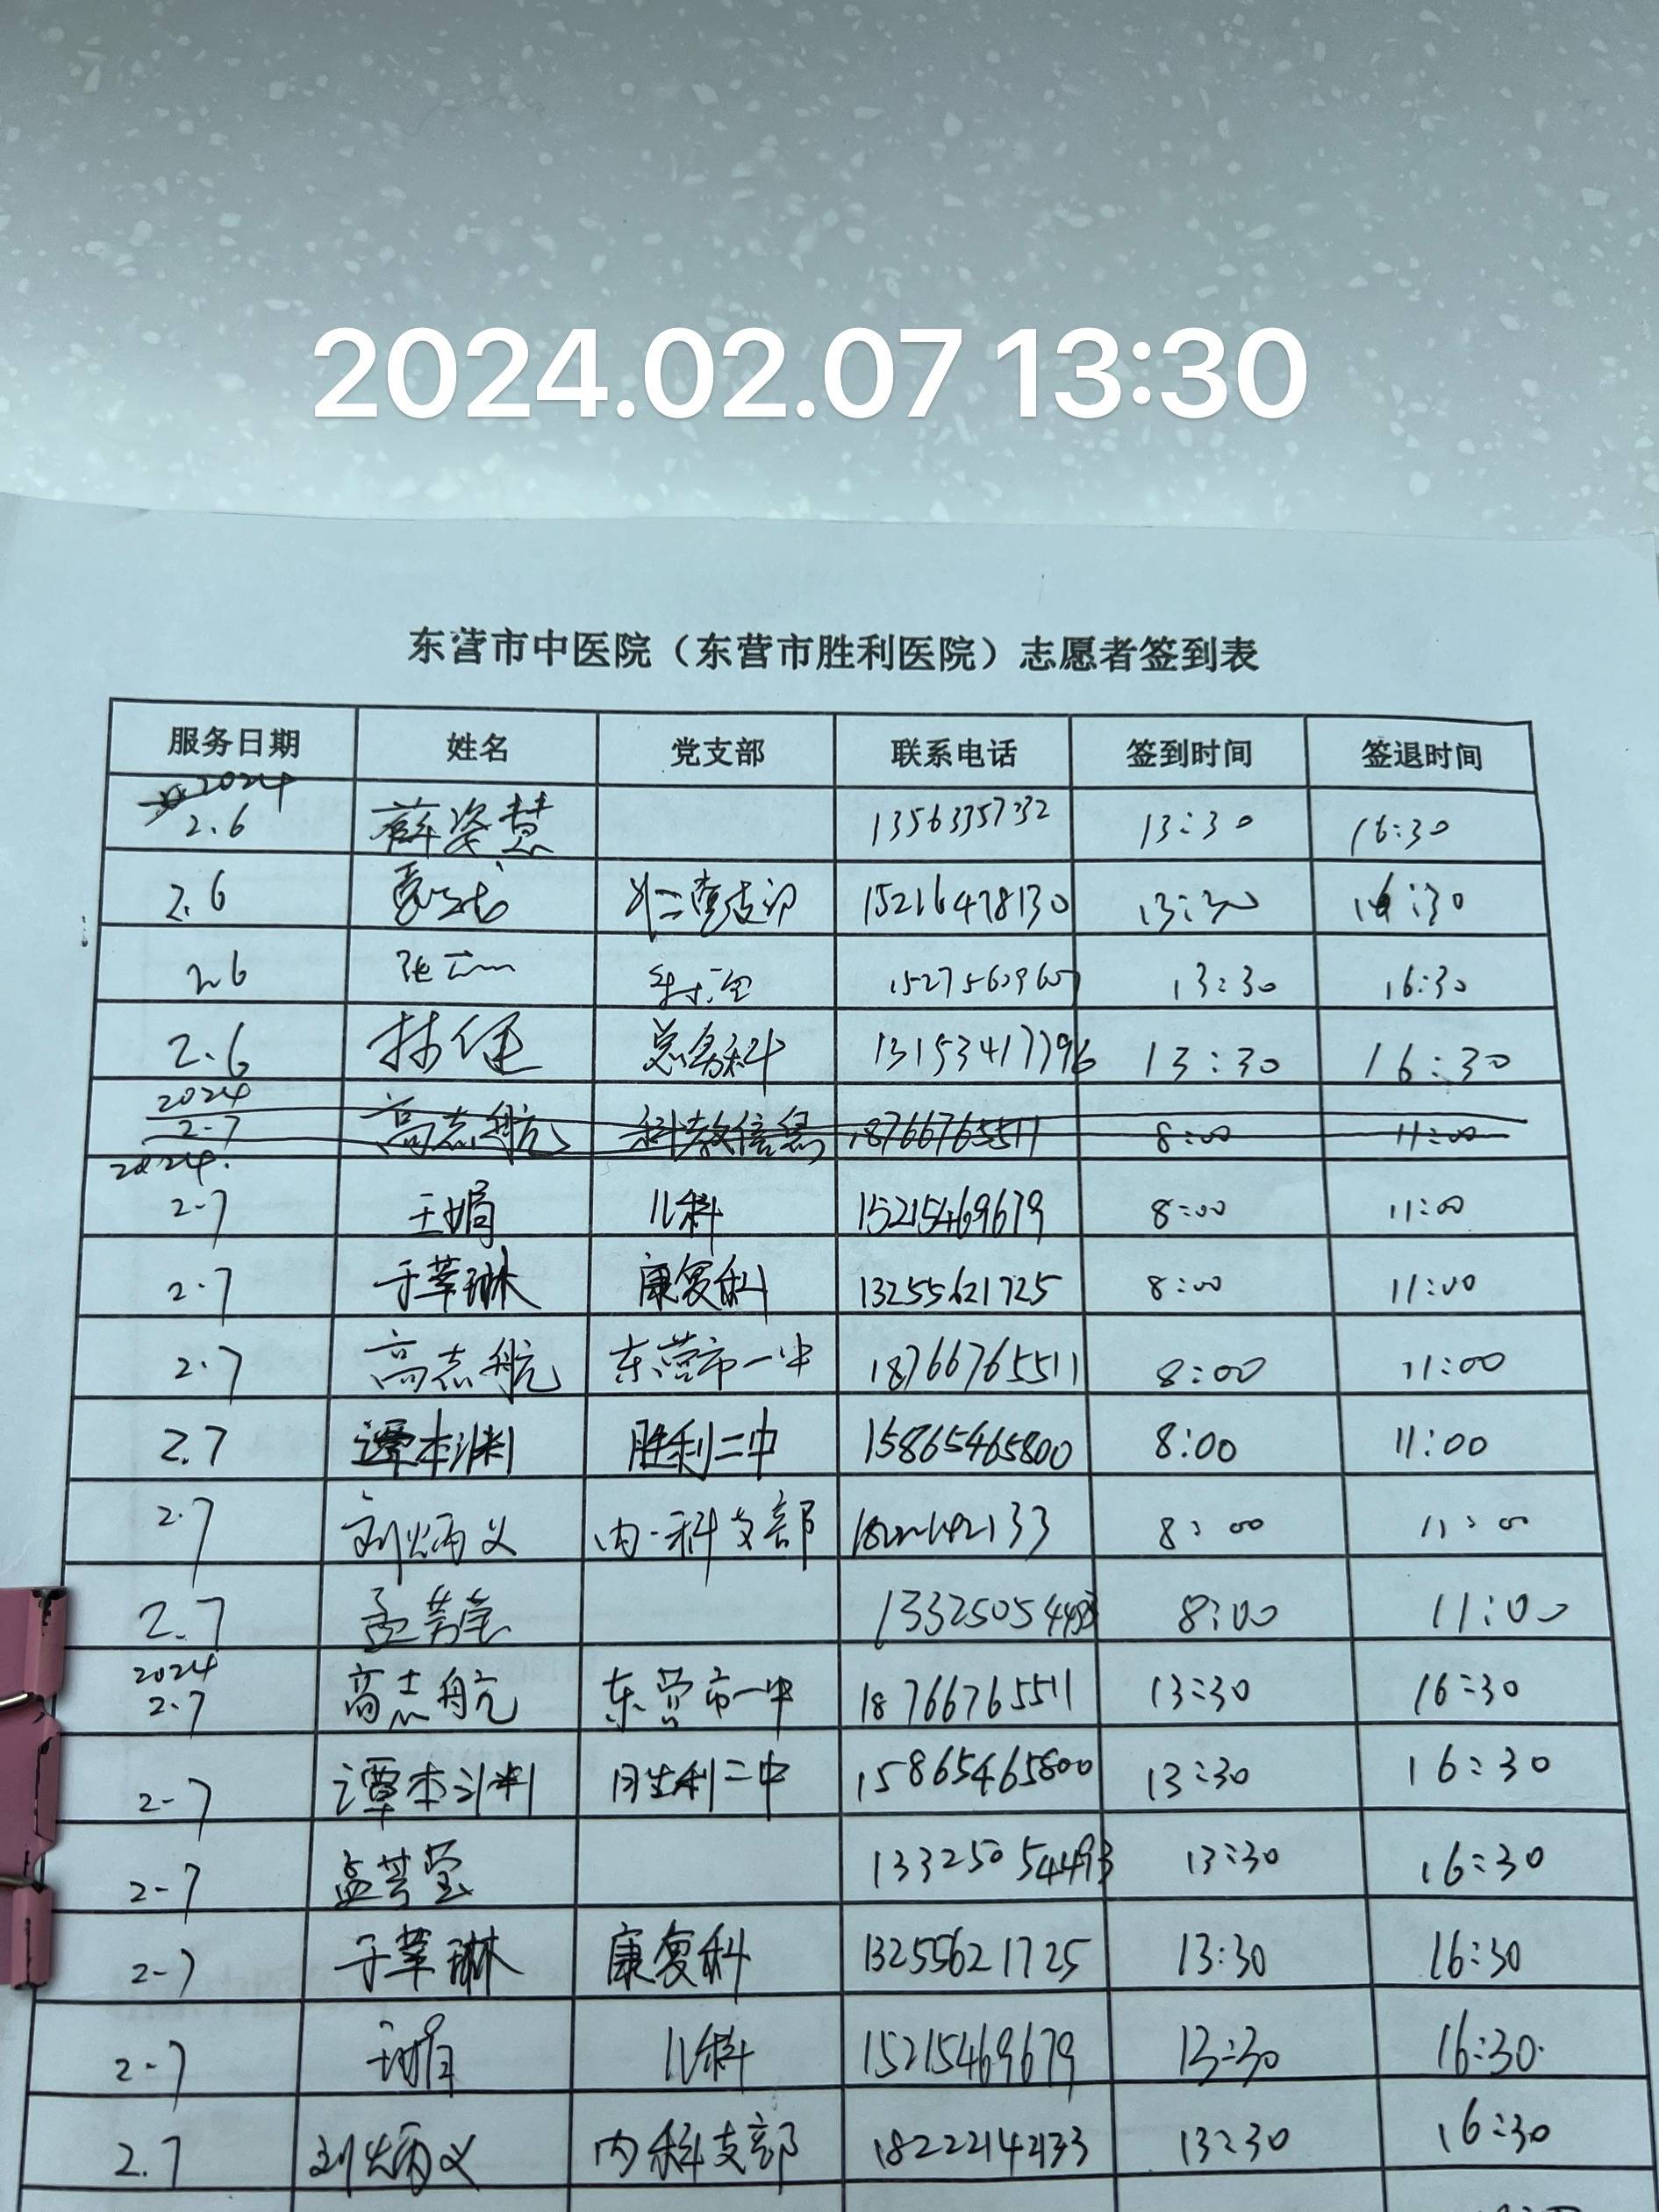 2024.02.07 13:30
东营市中医院（东营市胜利医院）志愿者签到表
服务日期 姓名 党支部 联系电话 签到时间 签退时间
2024
2.6 薛姿慧 13563357332 13:30 16:30
2.6 15216478130 13:30 16:30
2.6 张 13:30 16:30
2.6 总务科 13153417796 13:30 16:30
2024
2-7 高志航 科教信息 18766765511 8:00 11:00
2024.
2-7 王娟 儿科 15215469679 8:00 11:00
2.7 于莘琳 康复科 13255621725 8:00 11:00
2.7 高志航 东营市一中 18766765511 8:00 11:00
2.7 谭本渊 胜利二中 15865465800 8:00 11:00
2.7 刘炳义 内一科支部 8:00 11:00
2.7 孟 8:00 11:00
2024
2.7 高志航 东营市一中 18766765511 13:30 16:30
2-7 谭本渊 胜利二中 15865465800 13:30 16:30
2-7 孟 13325054493 13:30 16:30
2-7 于莘琳 康复科 13255621725 13:30 16:30
2-7 王娟 儿科 15215469679 13:30 16:30
2.7 刘炳义 内科支部 13:30 16:30